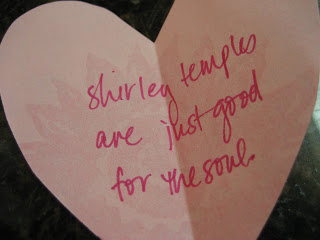 shirley temples
are just good
for the soul.